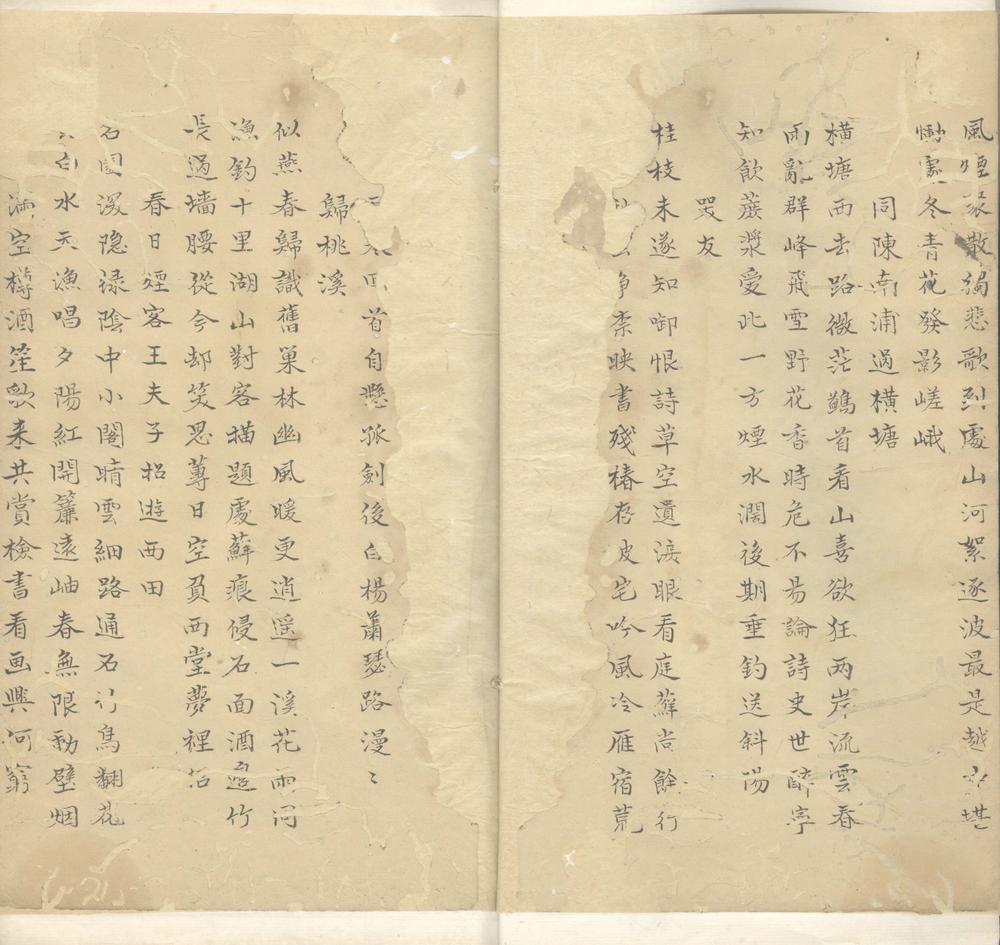 風煙散謁悲歌烈處山河絮逐波最是越堪
慟處冬青花發影嵯峨
同陳南浦過橫塘
橫塘西去路微茫鷁首看山喜欲狂两岸流雲春
雨亂群峰飛雪野花香時危不易論詩史世醉寧
知飲蔗漿愛此一方煙水濶後期垂釣送斜陽
哭友
桂枝未遂知啣恨詩草空遺淚眼看庭蘚尚餘行
柰映書殘椿存皮宅吟風冷雁宿荒
首自懸孤劍後白楊蕭瑟路漫〻
歸桃溪
似燕春歸識舊巢林幽風暖更逍遥一溪花雨问
漁釣十里湖山對客描題處蘚痕侵石面酒邊竹
長過墻腰從今却笑思蓴日空負西堂夢裡招
春日煙客王夫子招遊西田
名園深隐禄陰中小閣晴雲細路通石行鳥翻花
白水天漁唱夕陽紅開簾遠岫春無限動壁烟
滿空樽酒笙歌来共賞檢書看画興何窮